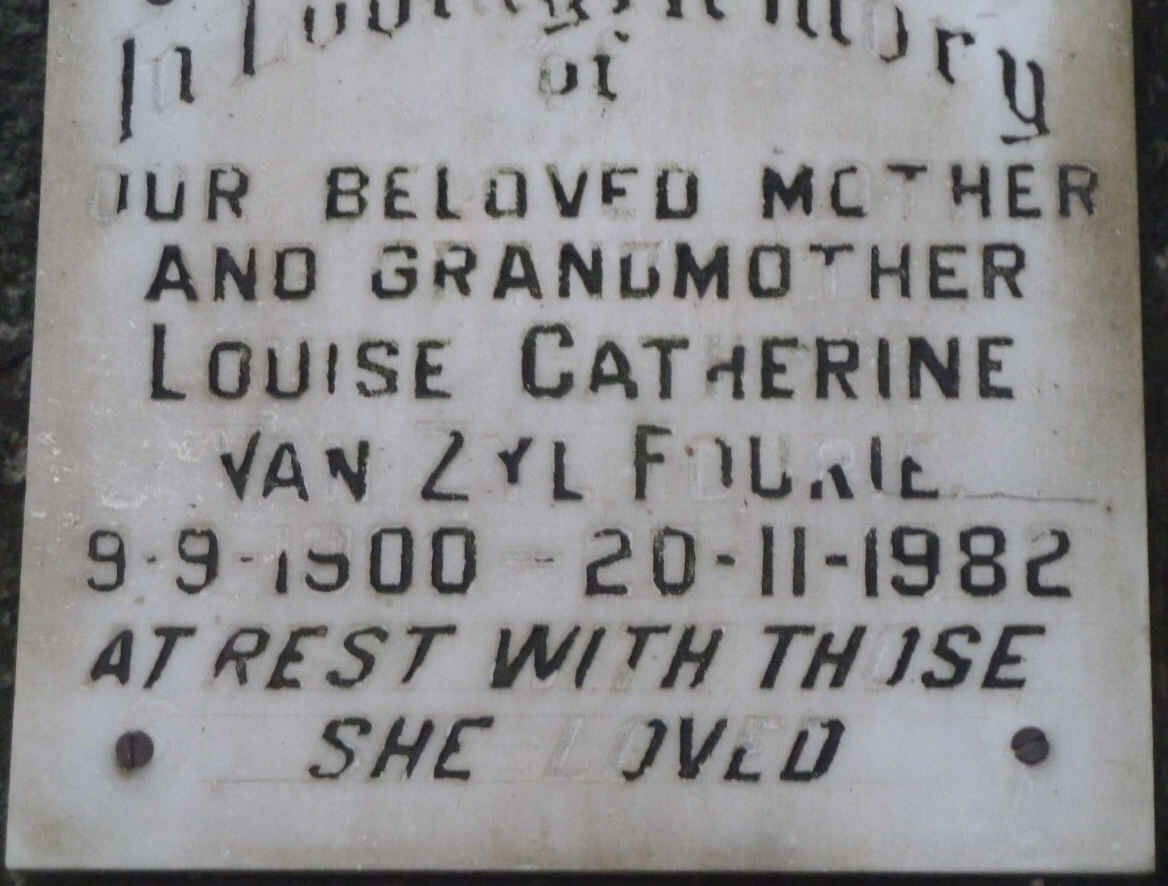 In Loving Memory
of
OUR BELOVED MOTHER
AND GRANDMOTHER
LOUISE CATHERINE
VAN ZYL FOURIE
9-9-1900 - 20-11-1982
AT REST WITH THOSE
SHE LOVED